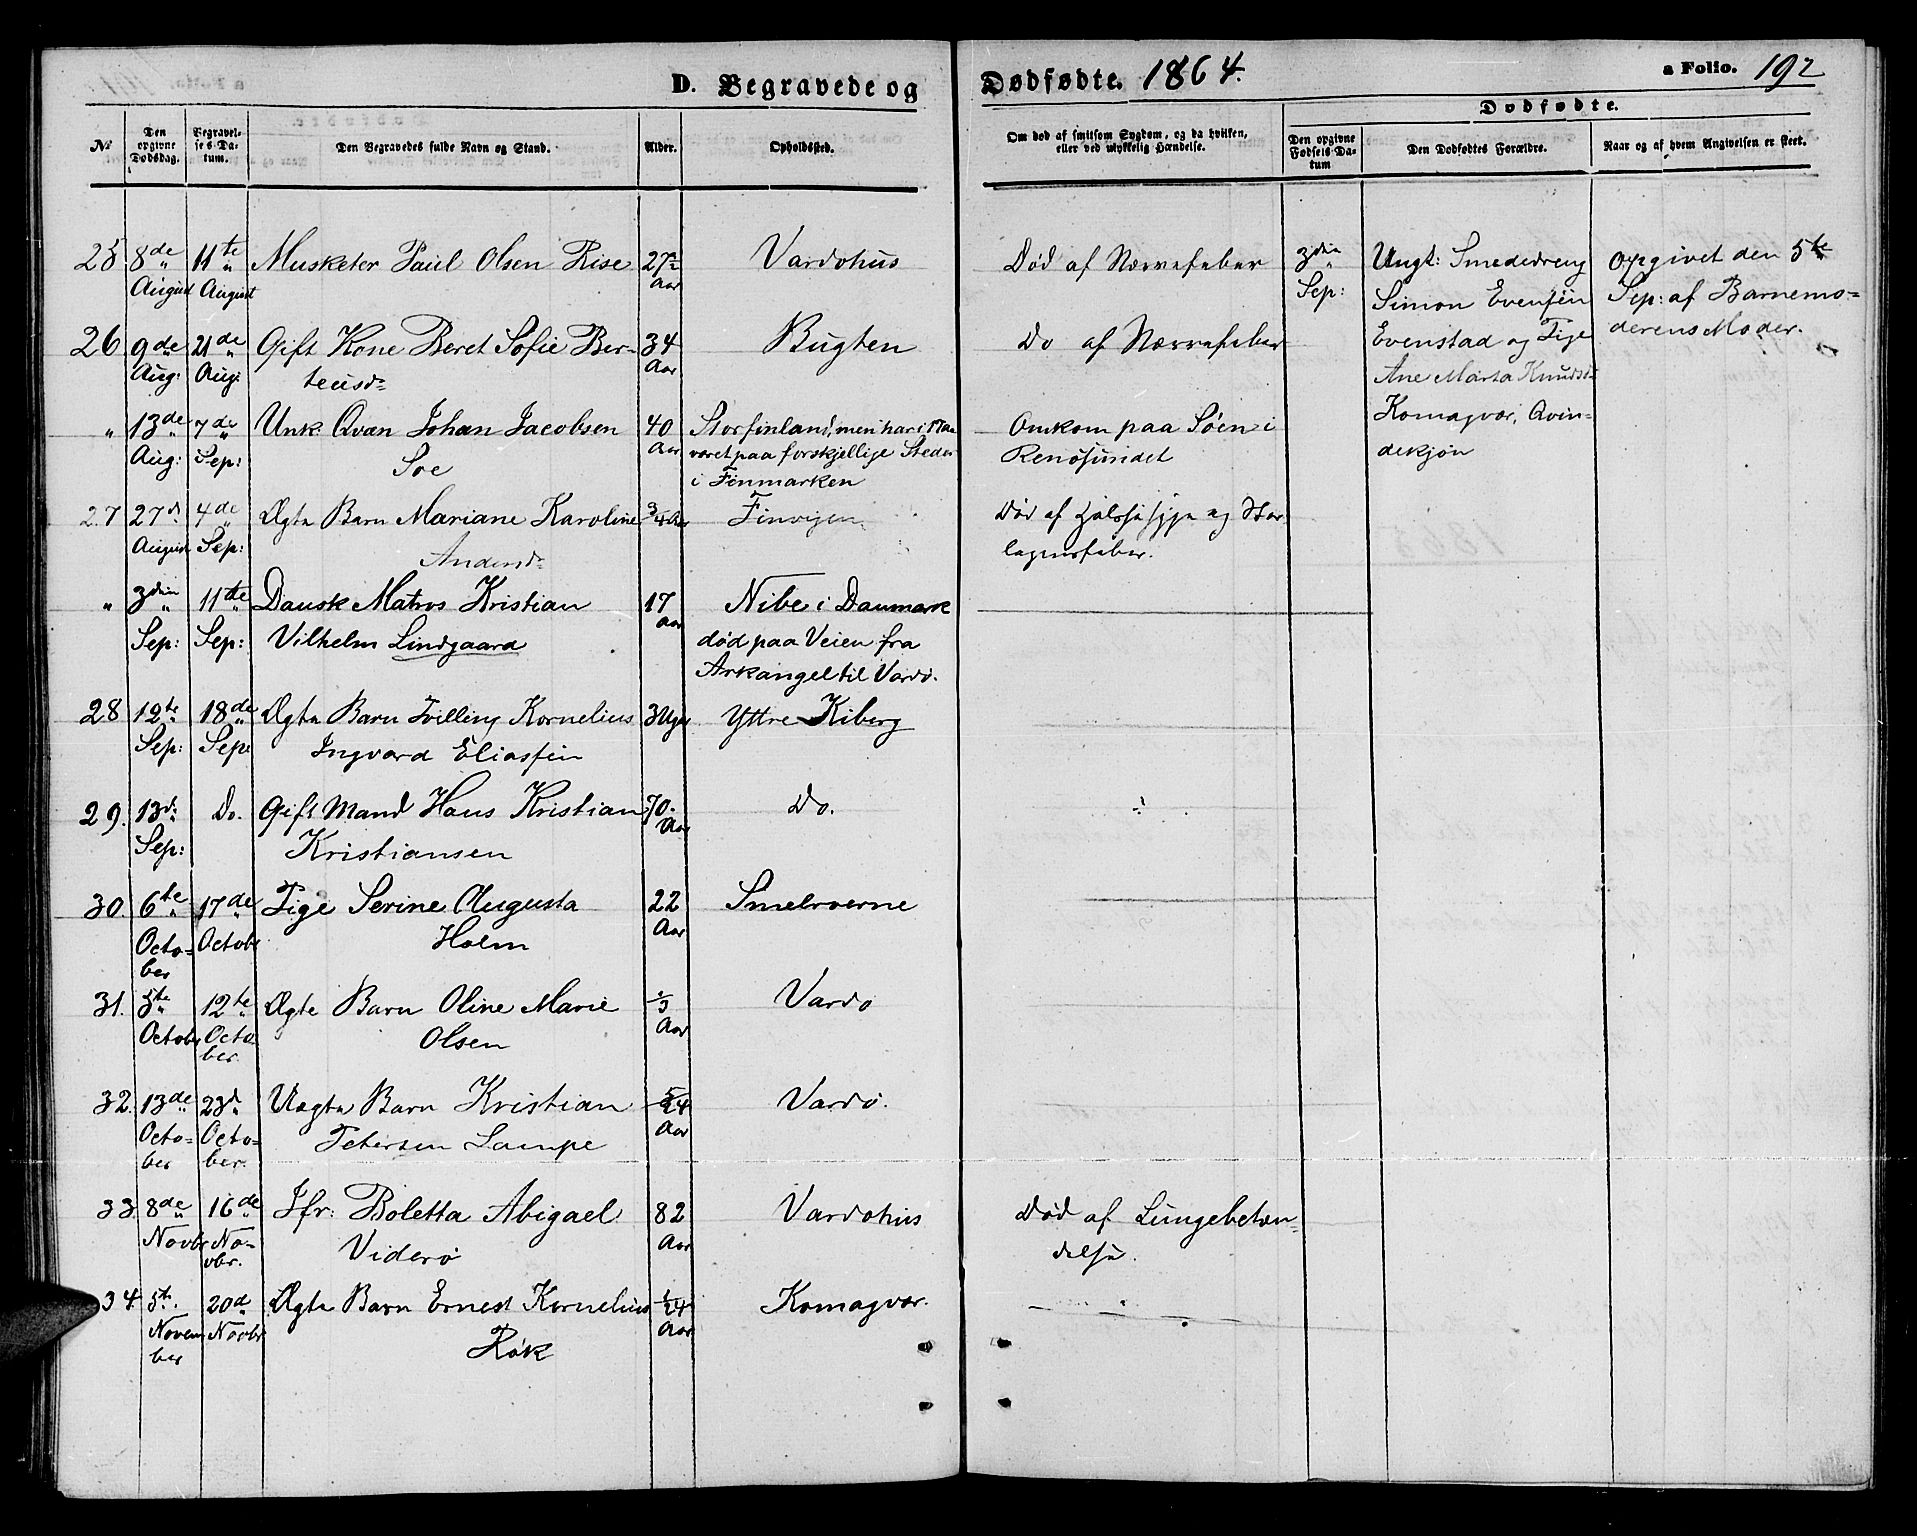 D. Begravede og Dødfødte. 1864. a Folio. 192
Dødfødte.
No
Den opgivne Dødsdag.
Begravelses-Datum.
Den Begravedes fulde Navn og Stand.
Alder.
Opholdssted.
Om død af smitsom Sygdom, og da hvilken, eller ved ulykkelig Hændelse.
Den opgivne Fødsels Datum
Den Dødfødtes Forældre.
Naar og af hvem Angivelsen er skeet.
25 8de 11te Musketer Paul Olsen Rise 27 Vardøhus Død af Nervefeber 3die Ungk: Smededreng opgivet den 5te
August August Aar Sep: Simon Evensen Sep: af Barnemo-
26 9de 21de Gift Kone Beret Sofie Ber- 34 Bugten Do af Nervefeber Evenstad og Pige derens Moder.
Aug: Aug: teusd= Aar Ane Marta Knudsd=
" 13de 7de Unk. Qvæn Johan Jacobsen 40 Storfinland, men har i Aar Omkom paa Søen i Komagvær, Qvin-
Aug: Sep: Soe Aar været paa forskjellige Steder Renøsundet dekjøn
i Finmarken
27 27d. 4de Ægte Barn Mariane Karoline 3/4 Aar Finvigen Død af Halssyge og Skar
August Sep: Andersd= lagensfeber.
" 3die 11te Dansk Matros Kristian 17 Nibe i Danmark
Sep: Sep: Vilhelm Lindgaard Aar død paa Veien fra
Arkangel til Vardø.
28 12te 18de Ægte Barn Tvilling Kornelius 3 Uger Yttre Kiberg
Sep: Sep: Ingvard Eliassen
29. 13d. Do. Gift Mand Hans Kristian 70. Do. ÷
Sep: Kristiansen Aar
30. 6te 17de Pige Serine Augusta 22 Smelrorerne
Octo- Octobr Holm Aar
ber
31. 5te 12te Ægte Barn Oline Marie 1/3 Vardø
Octobr Octo- Olsen Aar
ber.
32. 13de 23d Uægte Barn Kristian 5/24 Vardø.
Octo- Octo- Petersen Lampe Aar
ber ber.
33. 8de 16de Jfr: Boletta Abigael 82 Vardøhus Død af Lungebetæn-
Novbr No- Viderø Aar delse.
vbr.
34. 5te. 20d Ægte Barn Ernest Kornelius 1/24 Komagvær.
Novem Novbr Røk Aar
ber